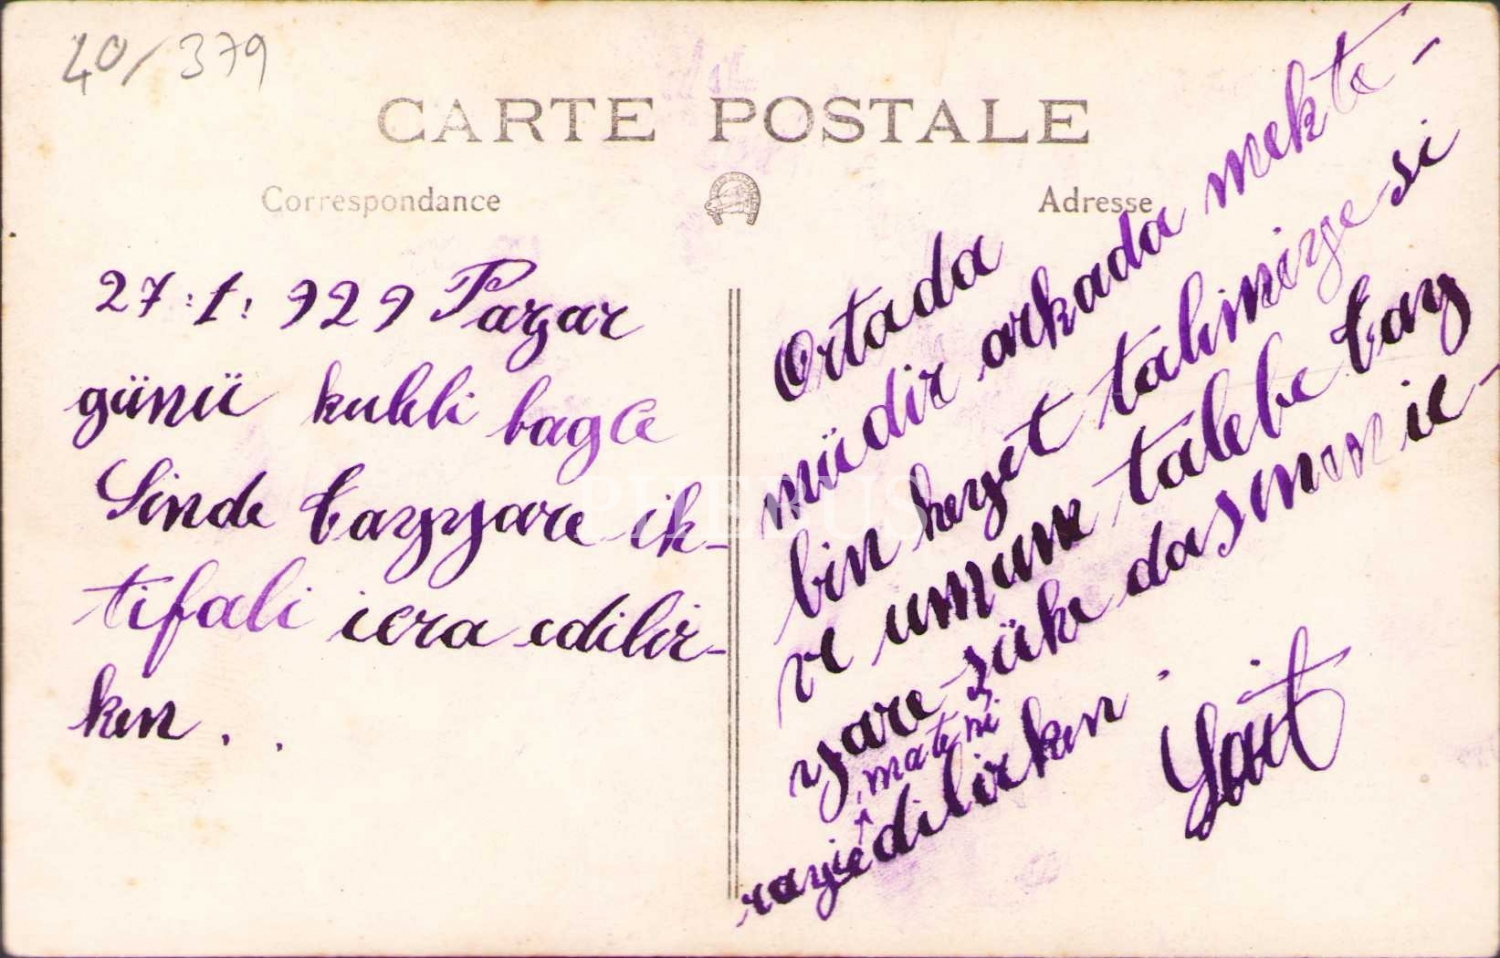 40/379
CARTE POSTALE
Correspondance
Adresse
27.1.929 Pazar
günü kuleli bagçe
Sinde tayyare ih-
tifali icra edilir-
ken . .
Ortada
müdir arkada mekte-
bin heyet talimiyesi
ve umum talebe tay
yare şühedasının ic-
matemi
rayiedilirken .
Sait
PITERUS